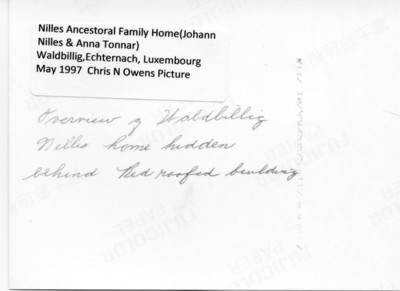 Nilles Ancestoral Family Home(Johann
Nilles & Anna Tonnar)
Waldbillig,Echternach, Luxembourg
May 1997 Chris N Owens Picture
Overview of Waldbillig
Nilles home hidden
behind Red roofed building